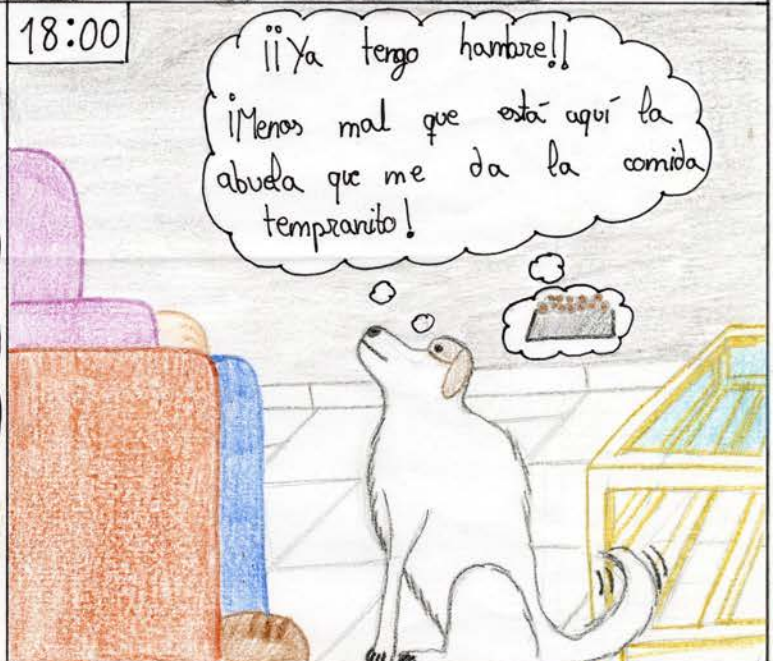 18:00
¡¡Ya tengo hambre!!
¡Menos mal que está aquí la
abuela que me da la comida
tempranito!